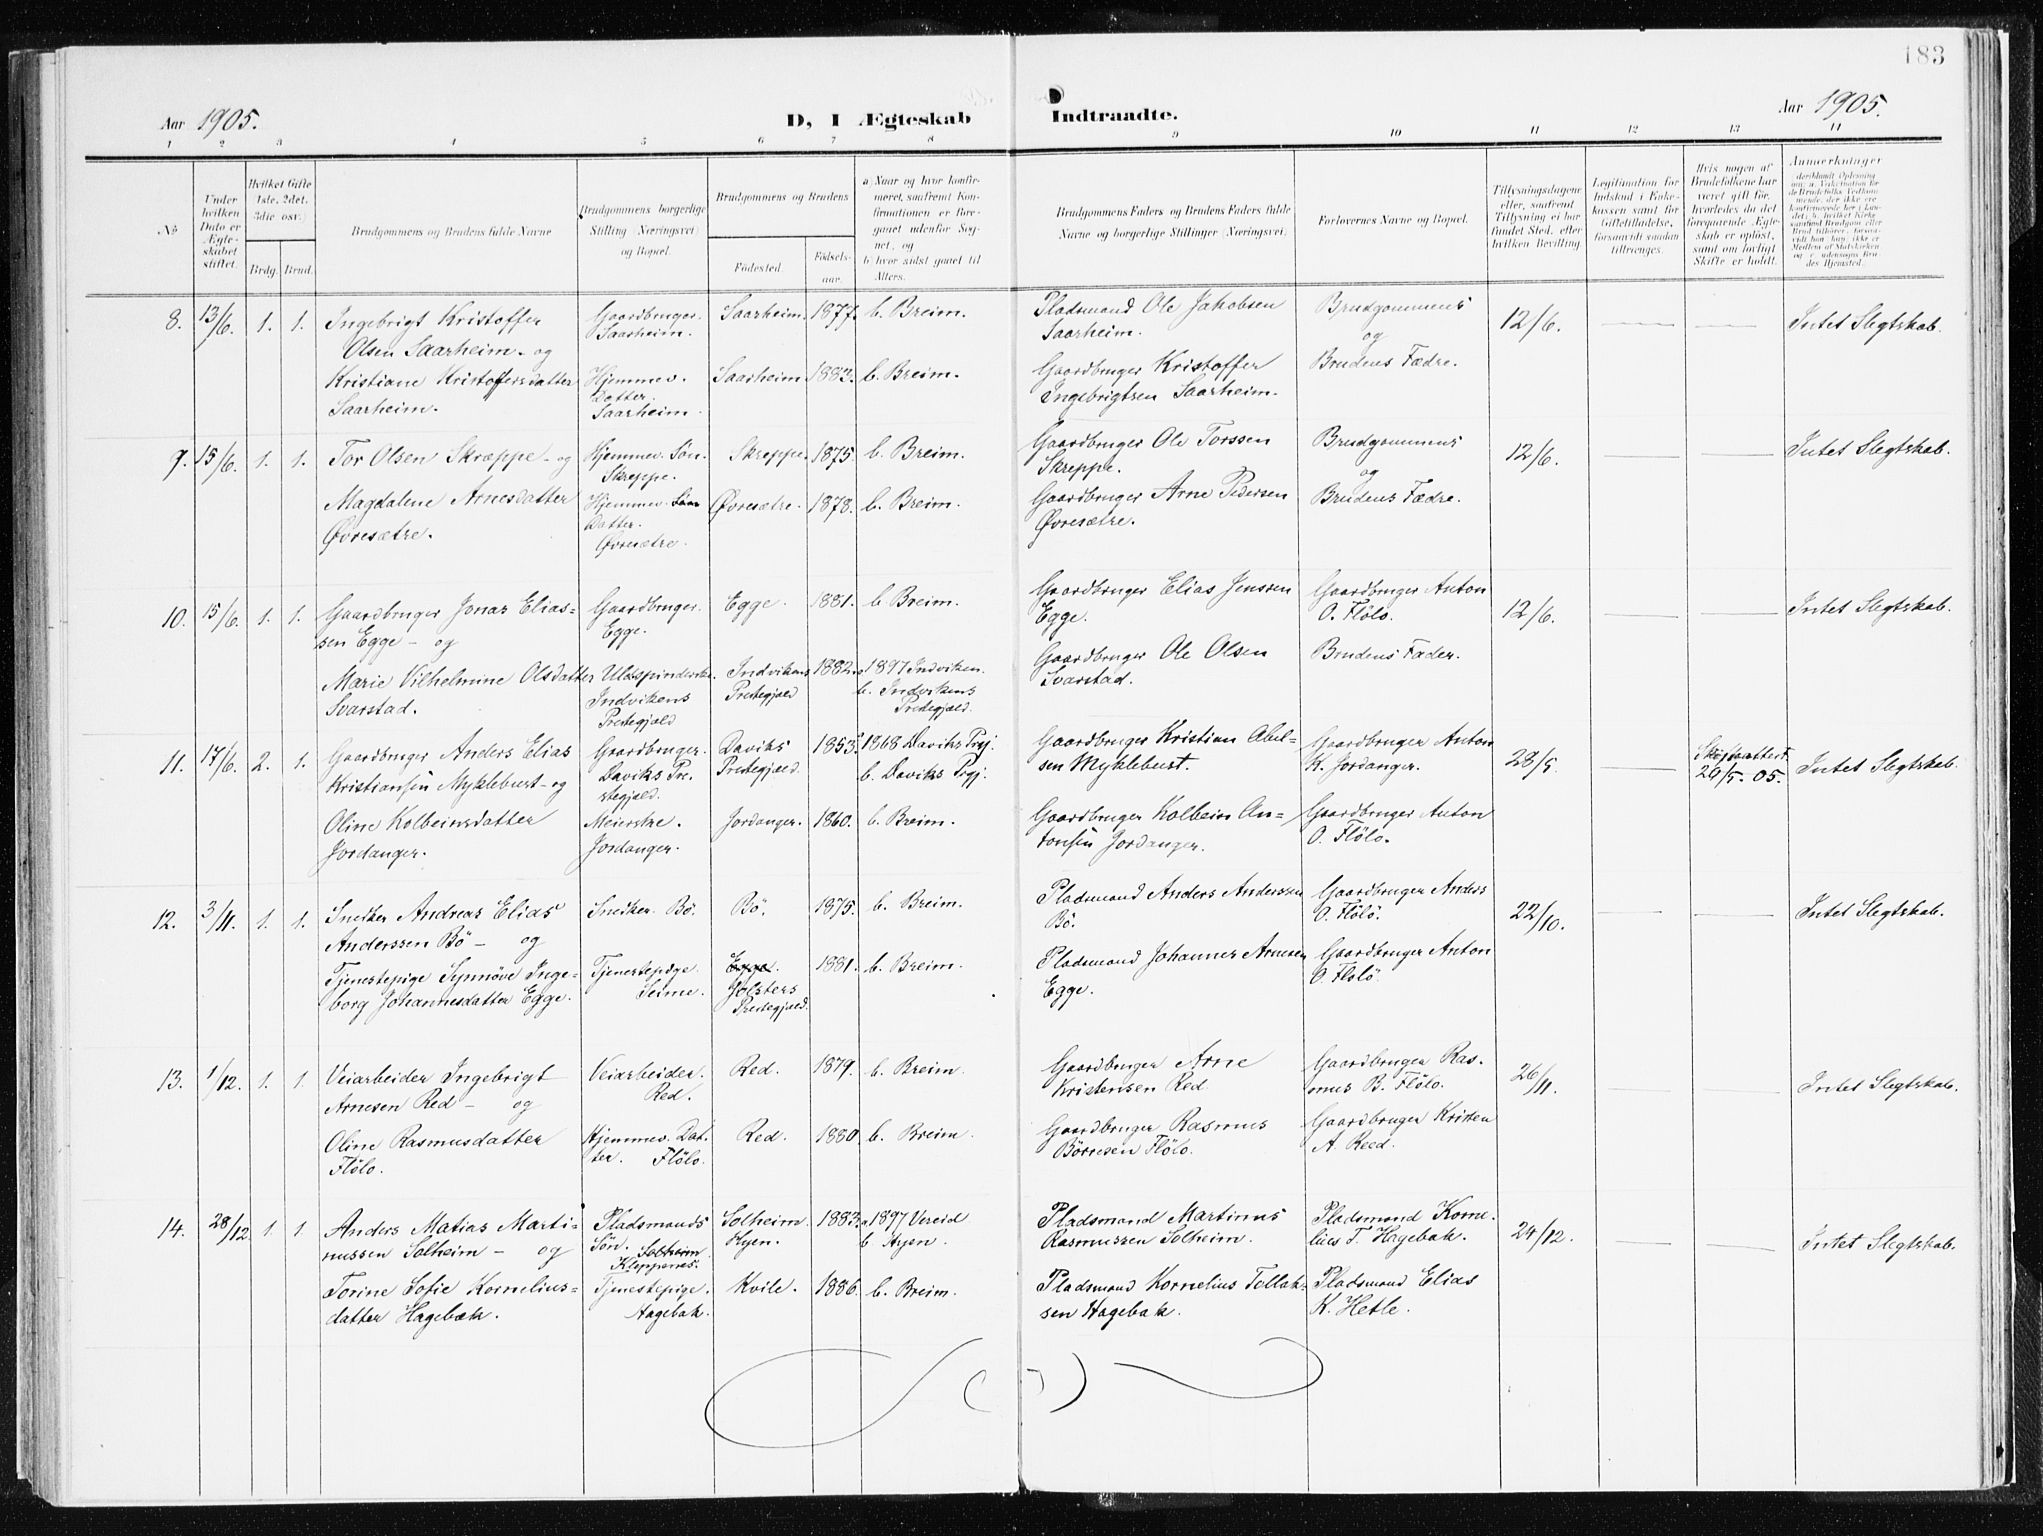 183
Aar 1905.
D, I Ægteskab
Indtraadte.
Aar 1905.
1 2 3 4 5 6 7 8 9 10 11 12 13 14
№
Under hvilken Dato er Ægteskabet stiftet.
Hvilket Gifte 1ste, 2det, 3die osv.)
Brdg. Brud.
Brudgommens og Brudens fulde Navne
Brudgommens borgerlige Stilling (Næringsvei) og Bopæl.
Brudgommens og Brudens
Födested.
Födselsaar.
a) Naar og hvor konfirmeret, saafremt Konfirmationen er foregaaet udenfor Sognet, og
b) hvor sidst gaaet til Alters.
Brudgommens Faders og Brudens Faders fulde Navne og borgerlige Stillinger (Næringsvei).
Forlovernes Navne og Bopæl.
Tillysningsdagene eller, saafremt Tillysning ei har fundet Sted, efter hvilken Bevilling.
Legitimation for Indskud i Enkekassen samt for Giftetilladelse, forsaavidt saadan tiltrænges.
Hvis nogen af Brudefolkene har været gift før, hvorledes da det foregaaende Ægteskab er oplöst, samt om lovligt Skifte er holdt.
Anmerkninger
8. 13/6. 1. 1. Ingebrigt Kristoffer Gaardbruger. Saarheim. 1877. b. Breim. Pladsmand Ole Jakobsen Brudgommens 12/6. Intet Slegtskab.
Olsen Saarheim. og Saarheim. Saarheim. og
Kristiane Kristoffersdatter Hjemmev. Saarheim 1883. b. Breim. Gaardbruger Kristoffer Brudens Fædre.
Saarheim. Datter. Saarheim. Ingebrigtsen Saarheim.
9. 15/6. 1. 1. Tor Olsen Skræppe - og Hjemmev. Søn. Skreppe. 1875. b. Breim. Gaardbruger Ole Torssen Brudgommens 12/6. Intet Slegtskab.
Skreppe. Skreppe. og
Magdalene Arnesdatter Hjemmev. Søn Øvresætre. 1878. b. Breim. Gaardbruger Arne Pedersen Brudens Fædre.
Øvresætre. Datter. Øvresætre. Øvresætre.
10. 15/6. 1. 1. Gaardbruger Jonas Elias= Gaardbruger. Egge. 1881. b Breim. Gaardbruger Elias Jenssen Gaardbruger Anton 12/6. Intet Slegtskab.
sen Egge - og Egge. Egge. O. Flölo.
Marie Vilhelmine Olsdatter Uldspinderske. Indvikens 1882. a 1897 Indviken. Gaardbruger Ole Olsen Brudens Fader.
Svarstad. Indvikens Prestegjæld Prestegjæld b. Indvikens Prestegjæld. Svarstad.
11. 17/6. 2. 1. Gaardbruger Anders Elias Gaardbruger. Daviks 1853. a 1868 Daviks Prgj. Gaardbruger Kristian Abel- Gaardbruger Anton 28/5. Skifteattest. Intet Slegtskab.
Kristiansen Myklebust - og Daviks Pre- Prestegjæld. b. Daviks Prgj. sen Myklebust. K. Jordanger. 26/5. 05.
stegjæld.
Oline Kolbeinsdatter Meierske. Jordanger. 1860. b. Breim. Gaardbruger Kolbein An= Gaardbruger Anton
Jordanger. Jordanger. tonsen Jordanger. O. Flölo.
12. 3/11. 1. 1. Snedker Andreas Elias Snedker. Bö. Bö. 1875. b. Breim. Pladsmand Anders Anderssen Gaardbruger Anders 22/10. Intet Slegtskab.
Anderssen Bö - og Bö. O. Flölö.
Tjenestepige Synnöve Inge- Tjenestepige. Egge. 1881. b. Breim. Pladsmand Johannes Arnesen Gaardbruger Anton
borg Johannesdatter Egge. Seime. Jolsters Prestegjæld. Egge. O. Flölö.
13. 1/12. 1. 1. Veiarbeider Ingebrigt Veiarbeider. Red. 1879. b. Breim Gaardbruger Arne Gaardbruger Ras- 26/11. Intet Slegtskab.
Arnesen Red - og Red. Kristensen Red mus B. Flölo.
Oline Rasmusdatter Hjemmev. Dat- Red. 1880 b. Breim. Gaardbruger Rasmus Gaardbruger Kristen
Flölo. ter. Flölo. Börresen Flölo. A. Reed.
14. 28/12 1. 1 Anders Matias Marti= Pladsmands Solheim. 1883. a 1897 Vereid Pladsmand Martinus Pladsmand Korne- 24/12. Intet Slegtskab.
nussen Solheim - og Søn. Solheim Hyen. b Hyen. Rasmussen Solheim. lius T. Hagebak.
Klippenes.
Torine Sofie Kornelius= Tjenestepige. Kvile. 1886. b. Breim. Pladsmand Kornelius Tollak= Pladsmand Elias
datter Hagebæk. Hagebak. sen Hagebak. K. Hetle.